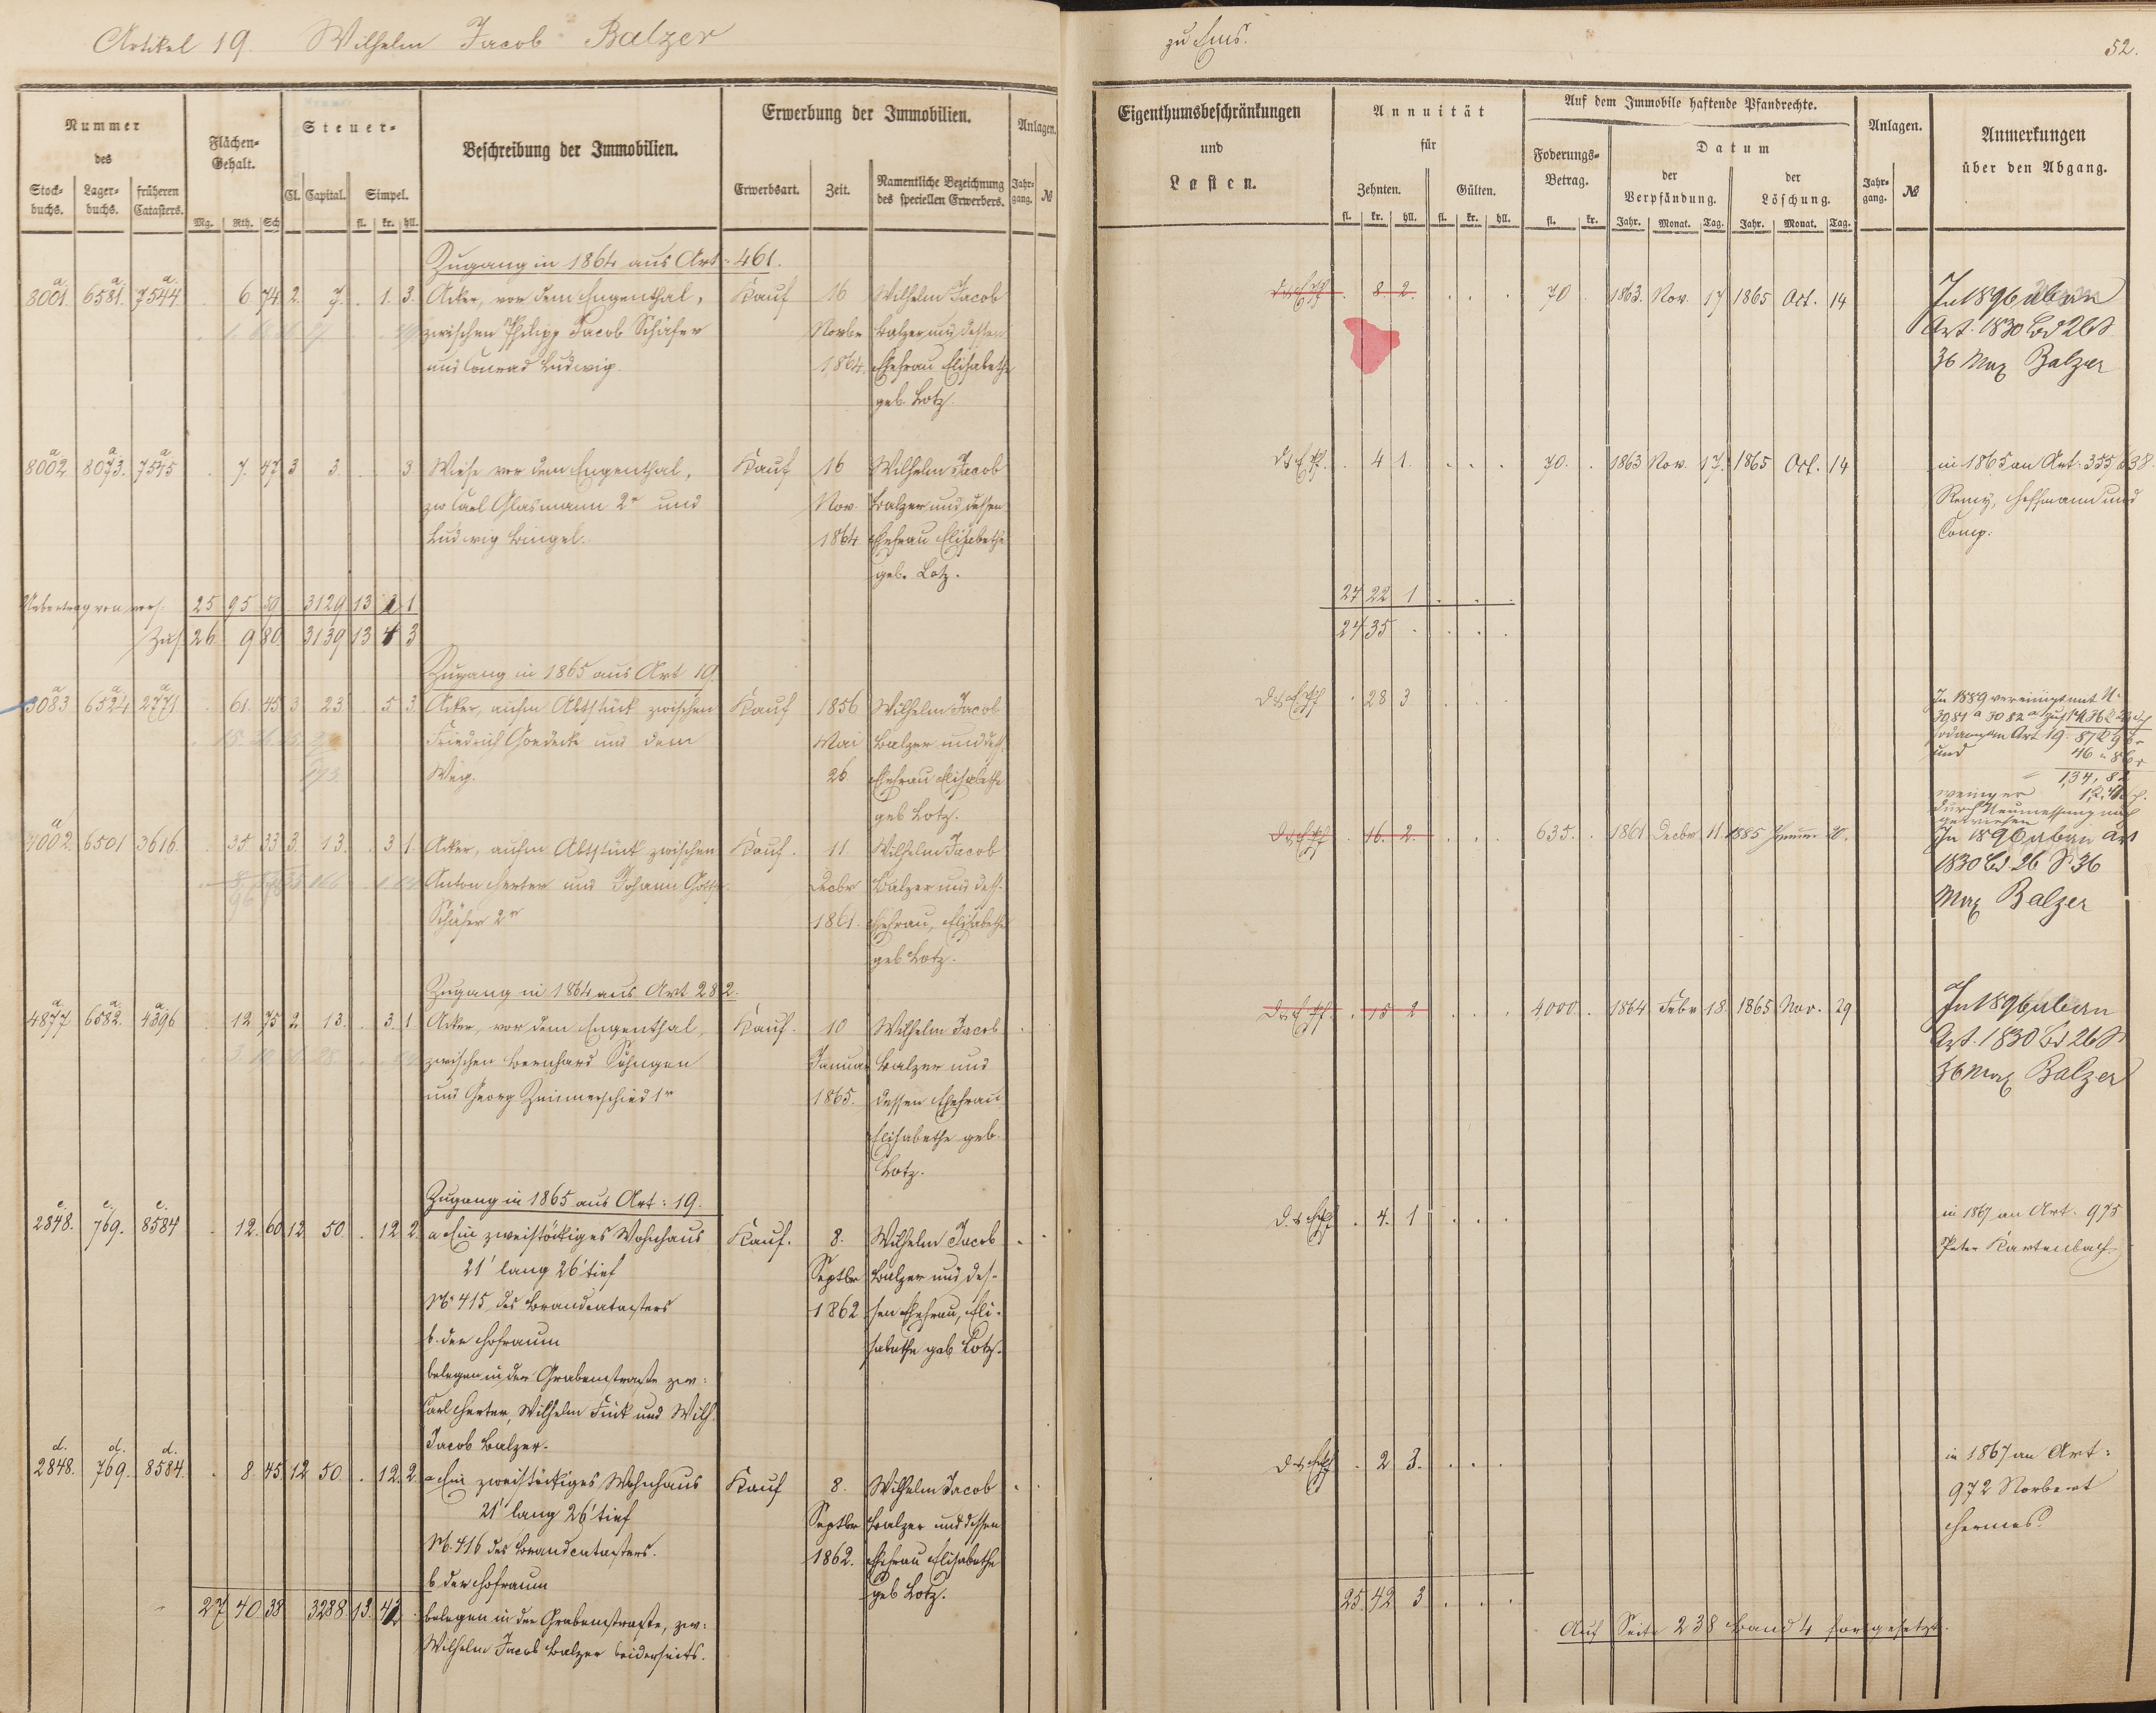 Artikel 19. Wilhelm Jacob Balzer
zu Ems.
52.
Nummer des
Stockbuchs. Lagerbuchs. früheren Catasters.
Flächen-Gehalt.
Mg. Rth. Sch
Steuer-
Cl. Capital. Simpel.
fl. kr. hll.
Beschreibung der Immobilien.
Erwerbung der Immobilien.
Erwerbsart. Zeit. Namentliche Bezeichnung des speciellen Erwerbers.
Anlagen.
Jahrgang. №
Eigenthumsbeschränkungen
und
Lasten.
Annuität
für
Zehnten. Gülten.
fl. kr. hll. fl. kr. hll.
Auf dem Immobile haftende Pfandrechte.
Foderungs-Betrag.
fl. kr.
Datum
der Verpfändung. der Löschung.
Jahr. Monat. Tag. Jahr. Monat. Tag.
Anlagen.
Jahrgang. №
Anmerkungen
über den Abgang.
Zugang in 1864 aus Art: 461.
a. a. a.
8001. 6581. 7544. 6 74. 2. 7. 1. 3. Acker, vor dem Engenthal, Kauf 16 Wilhelm Jacob 8. 2. 70 1863. Nov. 17 1865 Oct. 14 In 1896
zwischen Philipp Jacob Schäfer Novbr Balzer und dessen Art. 1830 Bd 26 S
und Conrad Ludwig. 1864. Ehefrau Elisabethe 36 Max Balzer
geb. Lotz.
a a a
8002 8073. 7545 7. 47 3 3 3 Wiese vor dem Engenthal, Kauf 16 Wilhelm Jacob 4 1. 70. 1863 Nov. 17. 1865 Oct. 14 in 1865 an Art: 355
zw Carl Glasmann 2r und Nov. Balzer und dessen Remy, Hoffmann und
Ludwig Bingel. 1864. Ehefrau Elisabethe Comp:
geb. Lotz.
Uebertrag von vors: 25 95 59 3129 13 1 24 22 1
Zus. 26 9 80 3139 13 4 3 24 35
Zugang in 1865 aus Art 19.
a a a
3083 6524 2771 61. 45 3 23 5 3 Acker, auf'm Abtstück zwischen Kauf 1856 Wilhelm Jacob 28 3 In 1889 vereinigt mit N.
Friedrich Goedecke und dem Mai Balzer und dess. 3081 a 3082 a
Weg. 26 Ehefrau Elisabethe und
geb Lotz. 134, 82
weniger
durch Neumessung nach
gewiesen
a
4002. 6501 3616 35 33 3. 13. 3 1 Acker, auf'm Abtstück zwischen Kauf. 11 Wilhelm Jacob 16. 2. 635. 1861 Decbr. 11. 1885 20.
Anton Herter und Johann Decbr Balzer und dess. 1830 Bd 26 S. 36
Schäfer 2r 1861. Ehefrau, Elisabethe Max Balzer
geb. Lotz.
Zugang in 1864 aus Art 282.
a. a. a.
4877. 6582. 4396 12 75 2. 13. 3. 1 Acker, vor dem Engenthal, Kauf. 10 Wilhelm Jacob 15 2 4000 1864 Febr 18. 1865 Nov. 29 In 1896
zwischen Bernhard Söhngen Januar Balzer und Art. 1830 Bd 26 S
und Georg Zimmerschied 1r 1865. dessen Ehefrau 36 Max Balzer
Elisabethe geb.
Lotz.
Zugang in 1865 aus Art: 19.
c. c. c.
2848. 769. 8584 12. 60 12 50 12 2. a Ein zweistöckiges Wohnhaus Kauf. 8. Wilhelm Jacob 4. 1 in 1867 an Art. 975
21' lang 26' tief Septbr Balzer und des- Peter Kartenbach
No 415 des Brandcatasters 1862 sen Ehefrau, Eli-
b. der Hofraum sabethe geb Lotz.
belegen in der Grabenstraße zw:
Carl Herter, Wilhelm Fink und Wilh.
Jacob Balzer.
d. d. d.
2848. 769. 8584. 8. 45. 12 50. 12. 2. a Ein zweistöckiges Wohnhaus Kauf 8. Wilhelm Jacob 2 3. in 1867 an Art:
21' lang 26' tief Septbr Balzer und dessen 972 Norbert
No. 416 des Brandcatasters. 1862. Ehefrau Elisabethe Hermes.
b der Hofraum geb Lotz.
27 40 38 3288 13. 42 belegen in der Grabenstraße, zw: 25. 42 3
Wilhelm Jacob Balzer beiderseits.
Auf Seite 238 Band 4 fortgesetzt.